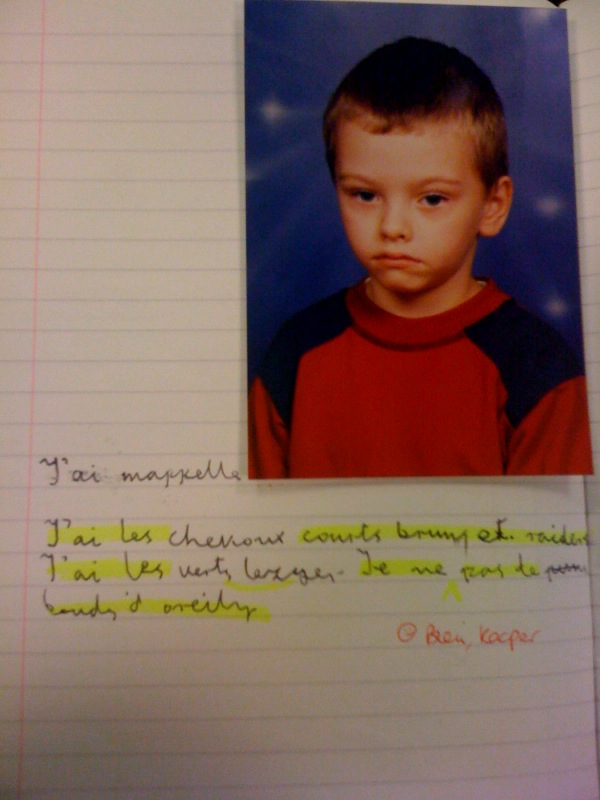 J'ai mappelle
J'ai les chevoux courts bruns et. raiders
J'ai les verts lezyer. Je ne pas de
bouds d'oreily
☺ Bien, Kacper